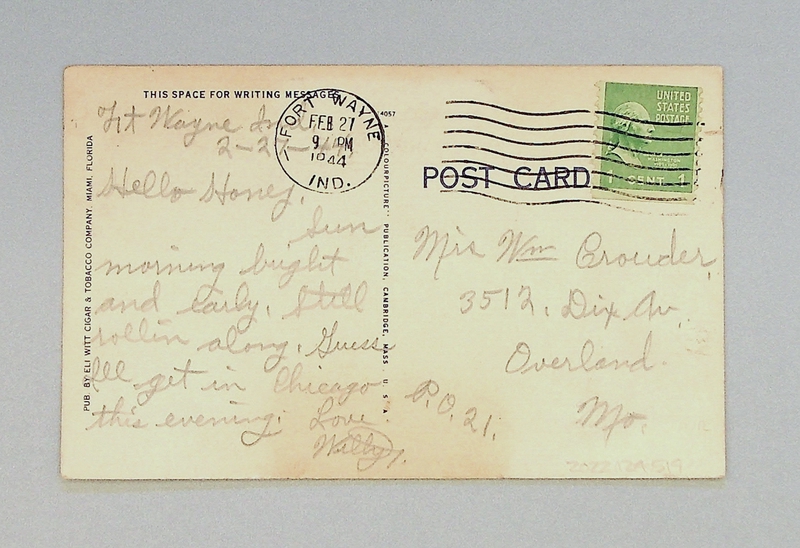 THIS SPACE FOR WRITING MESSAGES
Ft Wayne Ind
2-27-44
Hello Honey,
Sun
morning bright
and early. Still
rollin along. Guess
I'll get in Chicago
this evening. Love
Willy.
PUB. BY ELI WITT CIGAR & TOBACCO COMPANY, MIAMI, FLORIDA
4057
"COLOURPICTURE" PUBLICATION, CAMBRIDGE, MASS. U. S. A.
FORT WAYNE
FEB 27
9 PM
1944
IND.
UNITED
STATES
POSTAGE
WASHINGTON
1 CENT 1
POST CARD
Mrs Wm Crouder,
3512. Dix Av.
Overland.
P.O. 21. Mo.